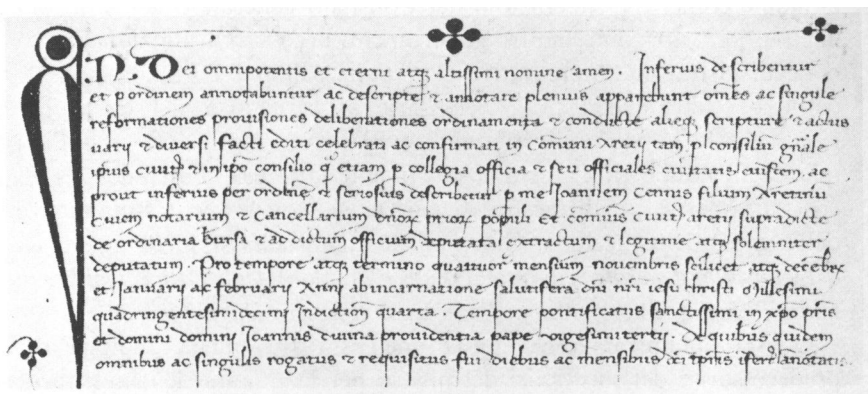 IN Dei omnipotentis et eterni atq altissimi nomine amen. Inferius describentur
et p ordinem annotabuntur ac descripte & annotate plenius apparebunt omes ac singule
reformationes provisiones deliberationes ordinamenta & conducte alieq scripture & actus
varii & diversi facti editi celebrati ac confirmati in Comuni Aretii tam p consilium gnale
ipius civit & in ipo consilio q etiam p collegia officia & seu officiales civitatis eiusdem ac
prout inferius per ordine & seriosius describetur p me Iohannem Cennis filium Aretinu
Civem notarium & Cancellarium dnor prior populi et comunis civit aretii supradicte
de ordinaria bursa & ad dictum officium deputata extractum & legitime atq solemniter
deputatum. Pro tempore atq termino quattuor mensium novembris scilicet atq decebr
et Ianuarii ac februarii Anni ab incarnatione salutifera dni nri iesu christi Millesimi
quadringentesimi decimi Indictione quarta. Tempore pontificatus sanctissimi in xpo pris
et domini domini Ioannis divina providentia pape vigesimi tertii. De quibus quidem
omnibus ac singulis rogatus & requisitus fui diebus ac mensibus